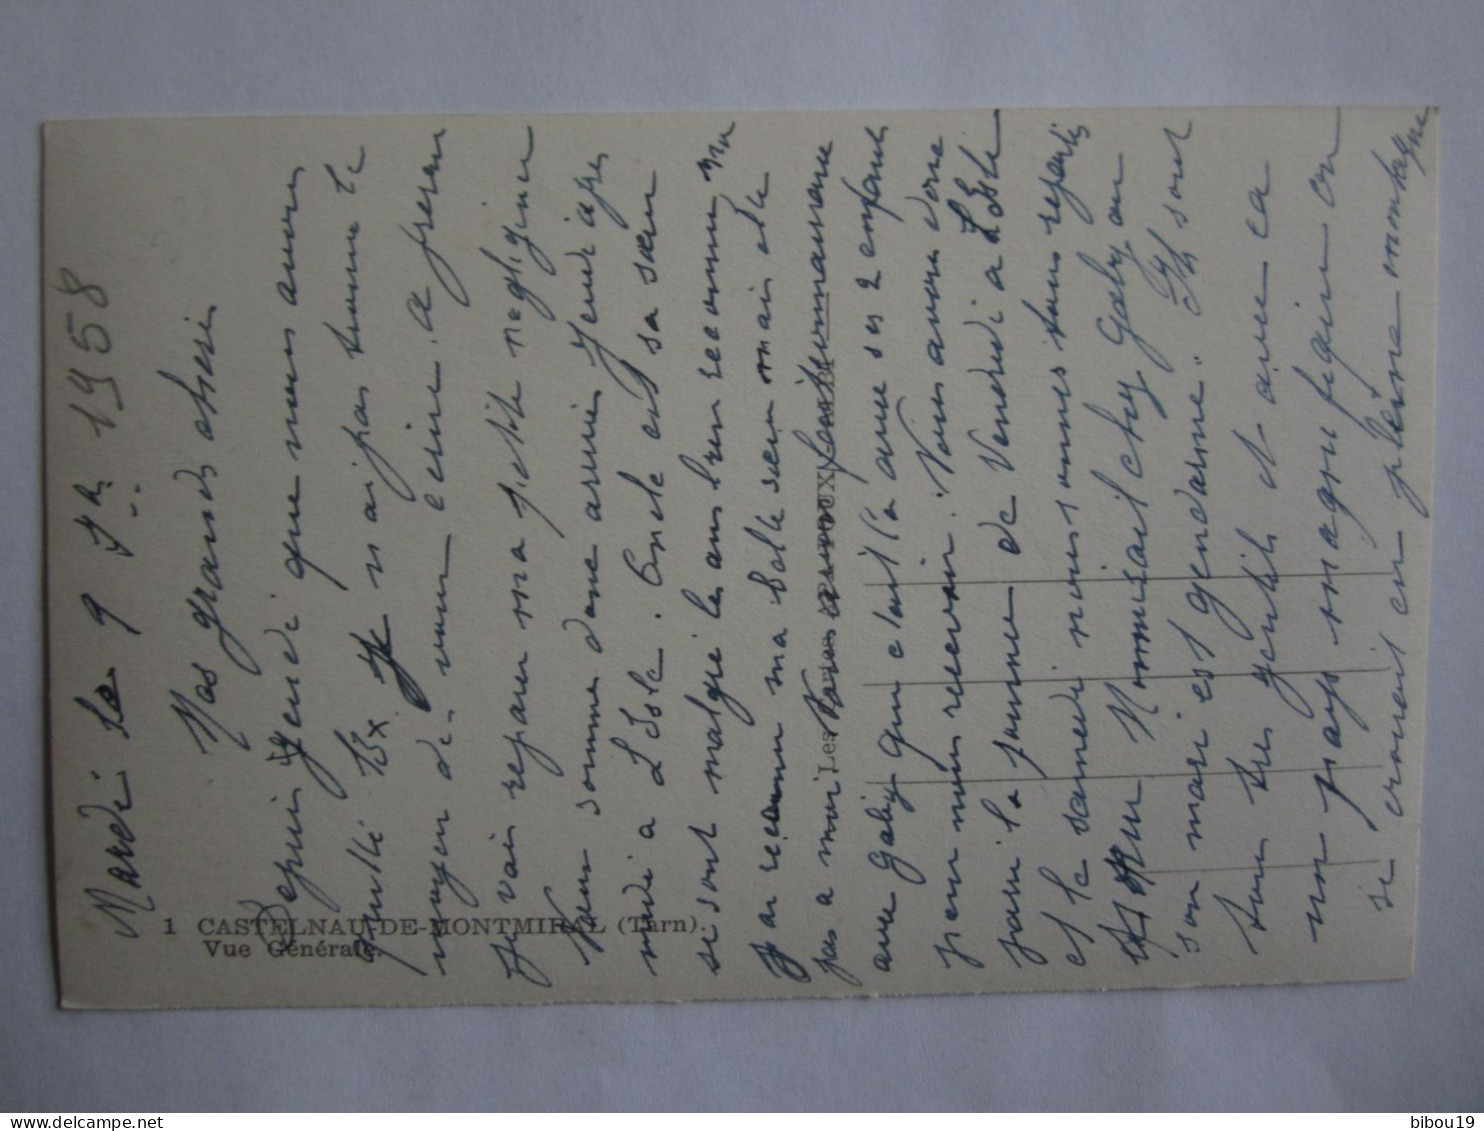 Mardi le 9 Sr 1958
Mes grands chéris
Depuis jeudi que nous avons
quitté Bx je n'ai pas trouvé le
moyen de vous écrire. a present
je vais reparer ma petite negligence
Nous sommes donc arrivés jeudi apres
midi a L'Isle. Oncle est sa sœur
se sont malgré les ans bien reconnu
J'ai reconnu ma belle sœur mais elle
pas a mon
avec Gaby qui etait la avec ses 2 enfants
pour nous recevoir. Nous avons donc
passé la journée de Vendredi a L'Isle
et le samedi nous sommes tous repartis
chez Gaby ou
son mari est gendarme. Ils sont
tous tres gentils et avec ca
un pays magnifique on
se croirait en pleine montagne
1 CASTELNAU-DE-MONTMIRAL (Tarn).
Vue Générale.